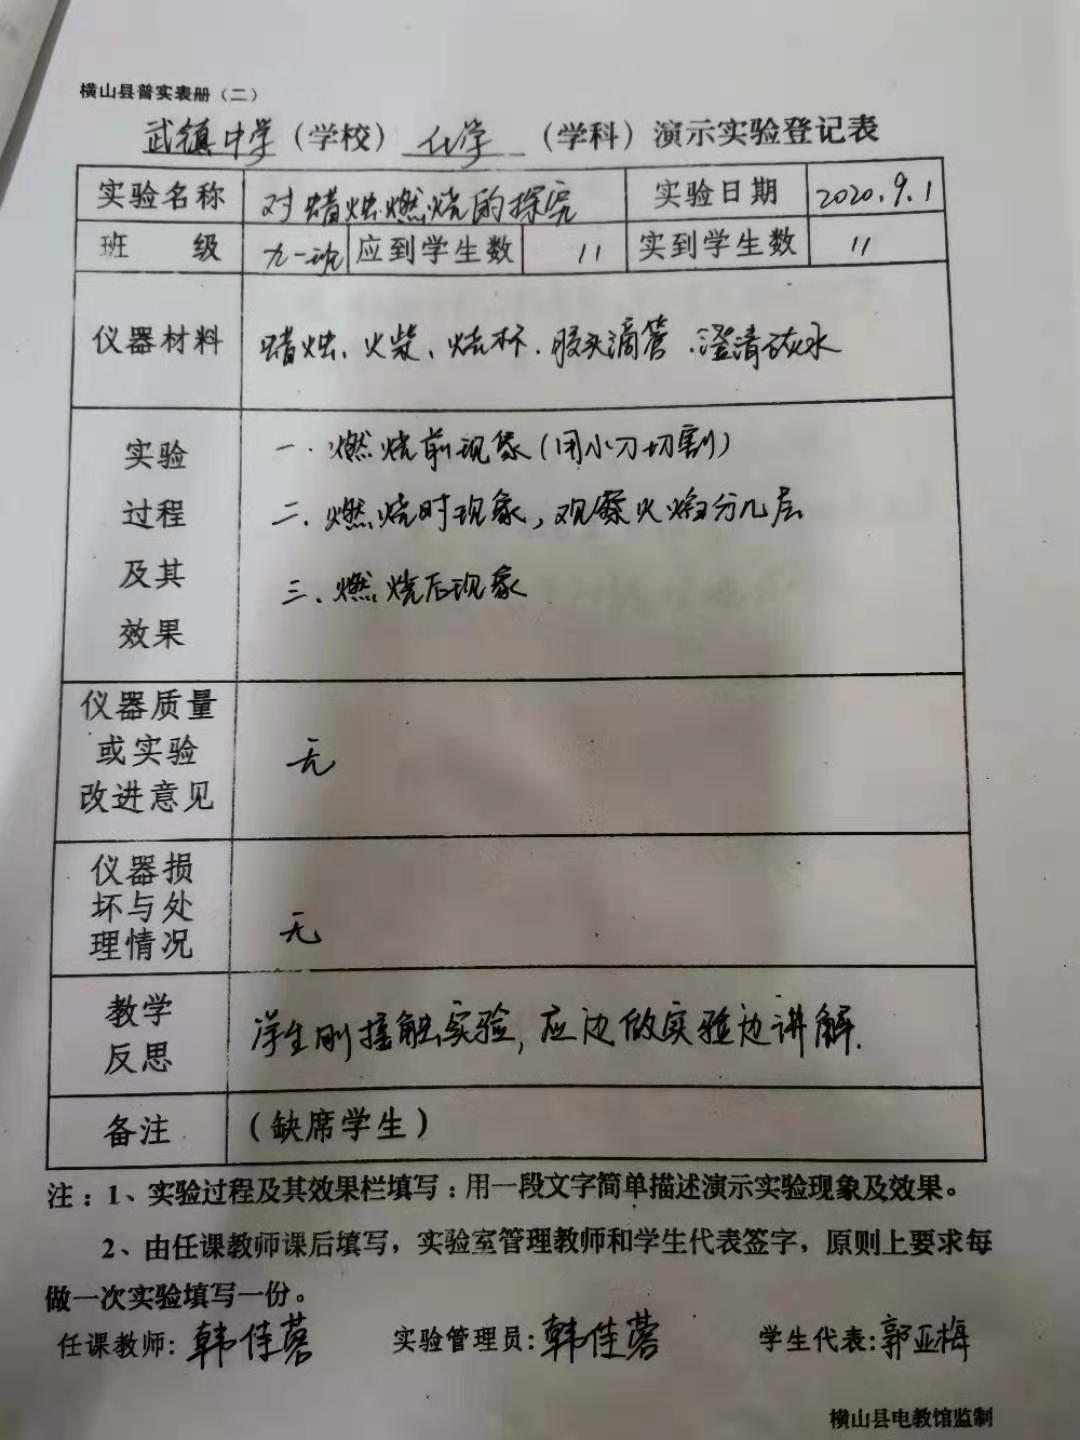 横山县普实表册（二）
武镇中学（学校）化学（学科）演示实验登记表
实验名称 对蜡烛燃烧的探究 实验日期 2020.9.1
班 级 九一班 应到学生数 11 实到学生数 11
仪器材料 蜡烛、火柴、烧杯.胶头滴管.澄清石灰水
实验
过程
及其
效果
一.燃烧前现象(用小刀切割)
二.燃烧时现象,观察火焰分几层
三.燃烧后现象
仪器质量
或实验
改进意见
无
仪器损
坏与处
理情况
无
教学
反思
学生刚接触实验,应边做实验边讲解.
备注 （缺席学生）
注：1、实验过程及其效果栏填写：用一段文字简单描述演示实验现象及效果。
2、由任课教师课后填写，实验室管理教师和学生代表签字，原则上要求每
做一次实验填写一份。
任课教师:韩佳蓉 实验管理员:韩佳蓉 学生代表:郭亚梅
横山县电教馆监制